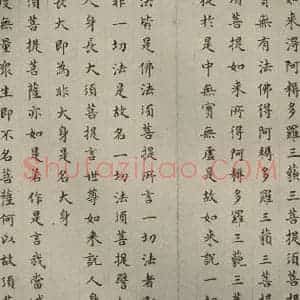 如來得阿耨多羅三藐三菩提
實無有法佛得阿耨多羅三藐三菩提
須菩提如來所得阿耨多羅三藐三菩
提於是中無實無虛是故如來說一
法皆是佛法須菩提所言一切法者
非一切法是故名一切法須菩提譬
人身長大須菩提言世尊如來說人身
長大即為非大身是名大身
須菩提菩薩亦如是若作是言我當
度無量眾生即不名菩薩何以故須菩
Shufaziliao.com